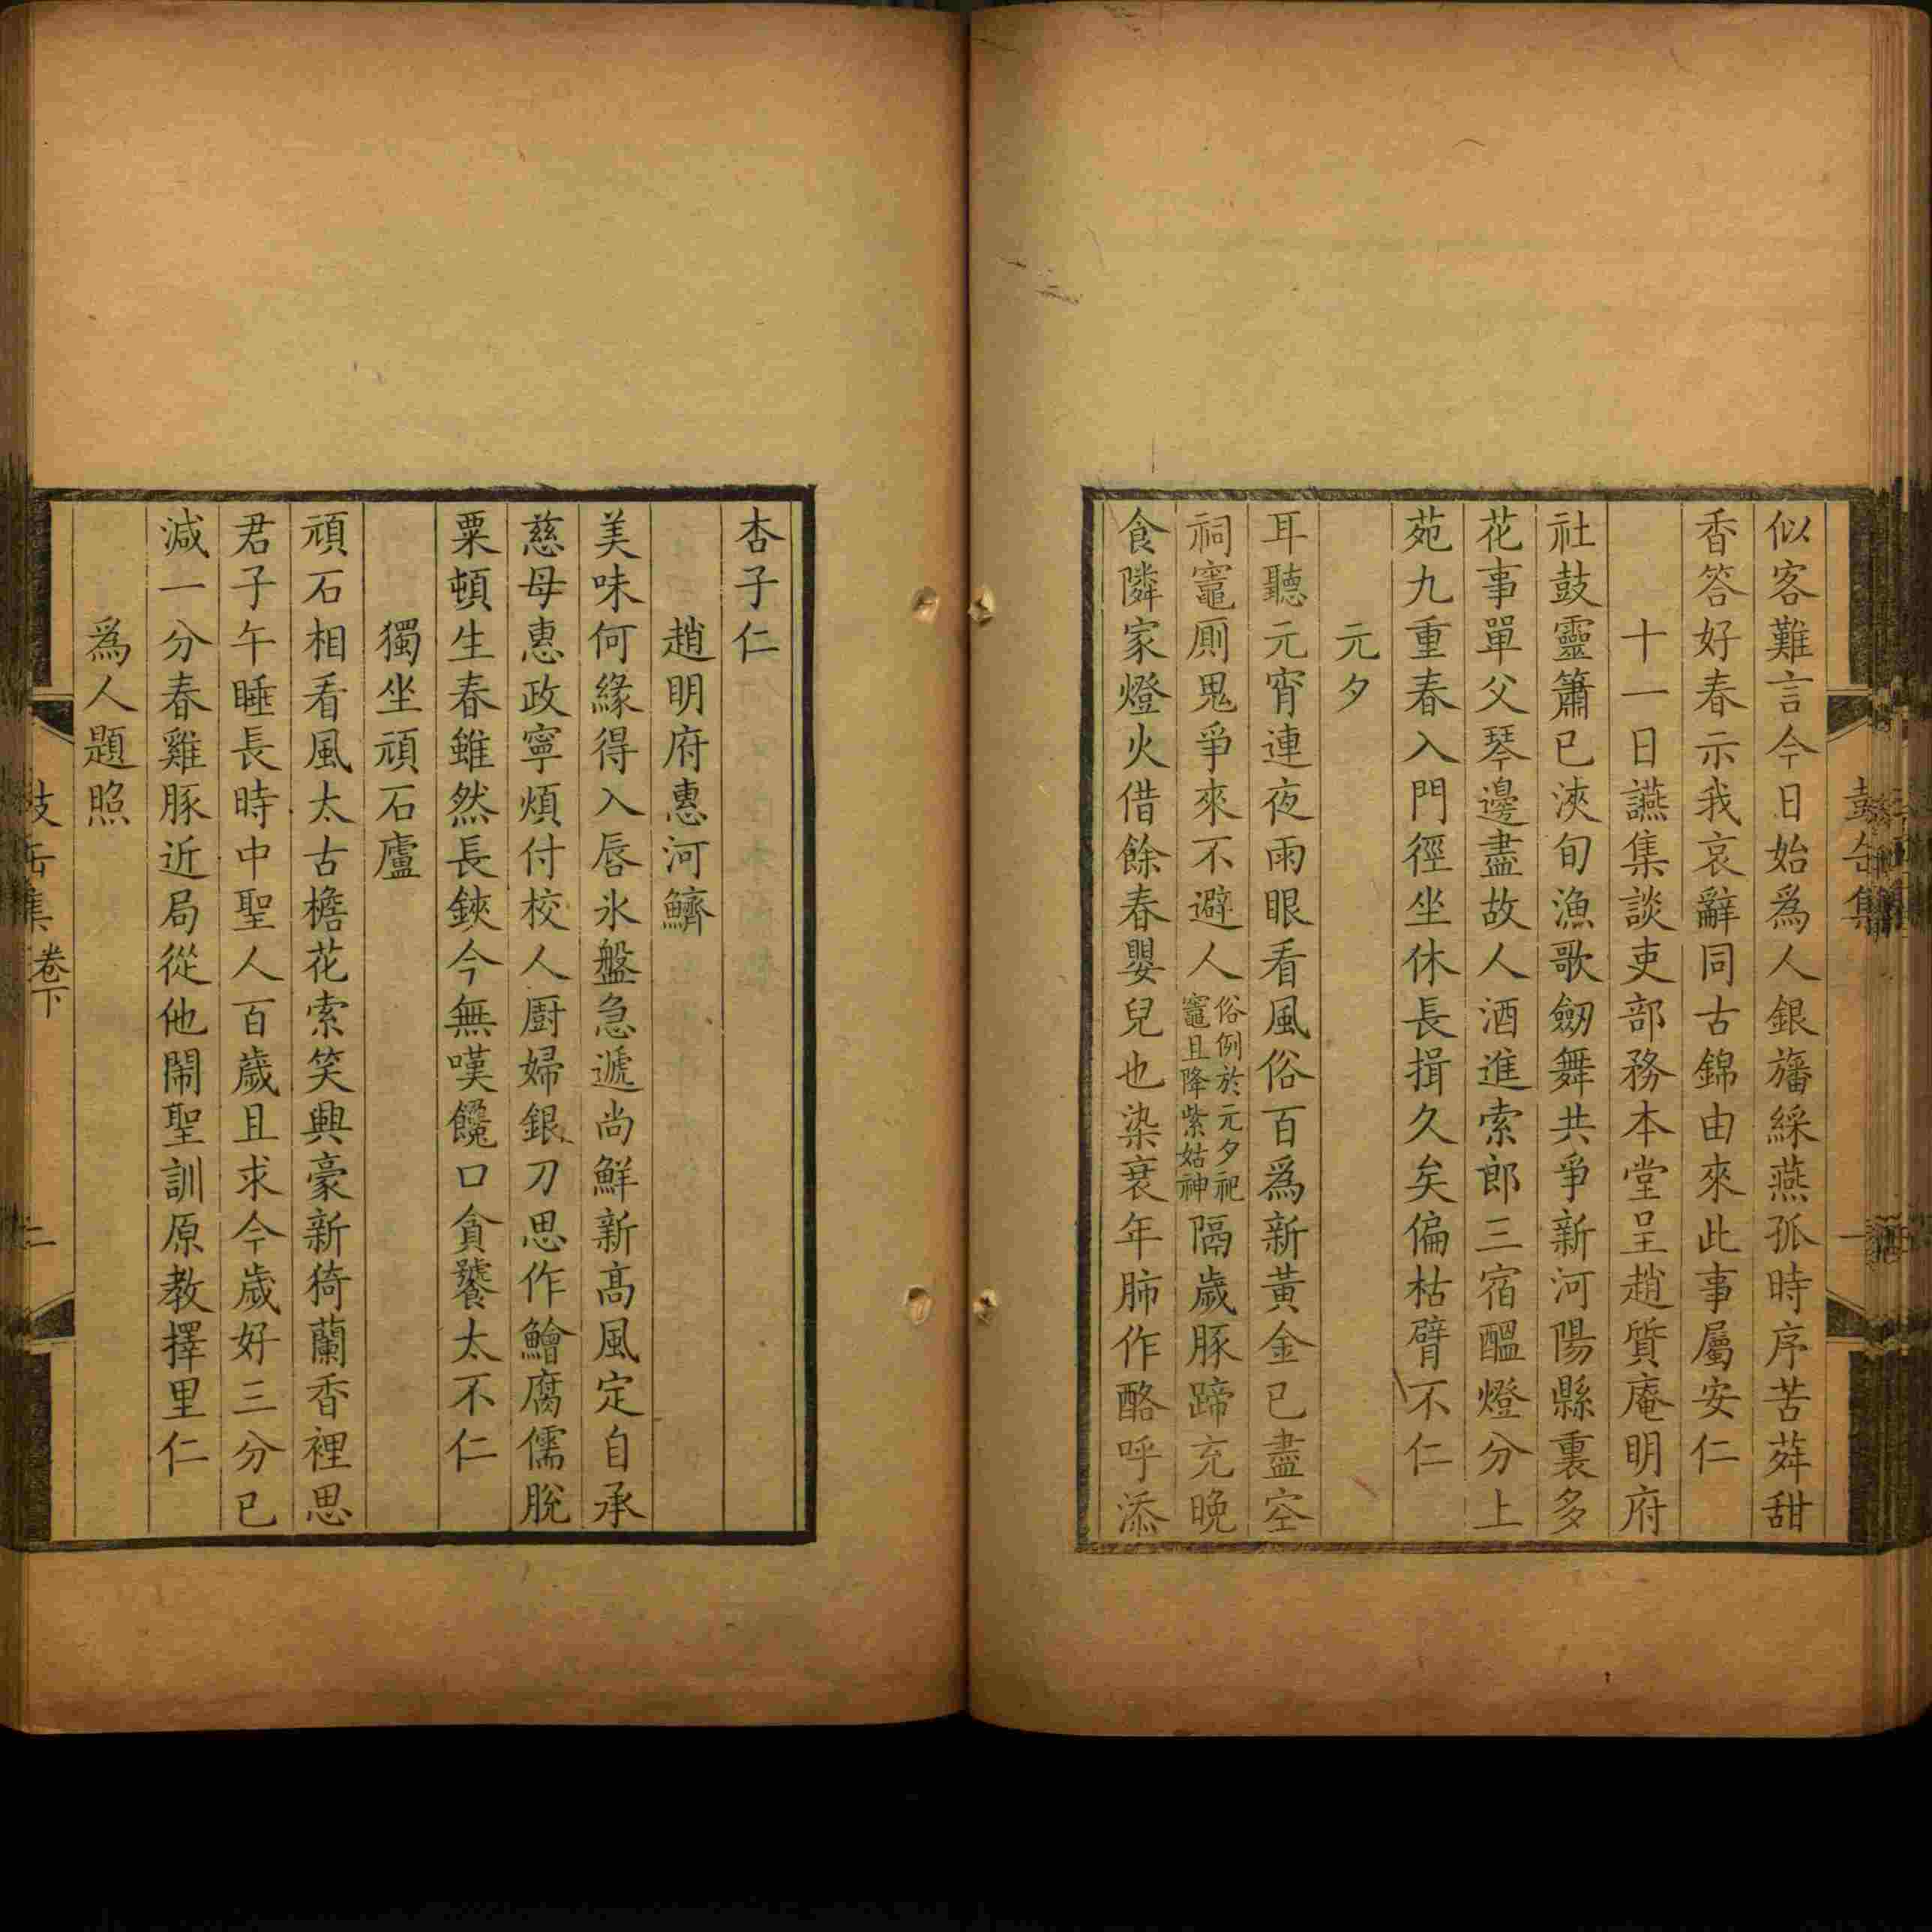 似客難言今日始爲人銀旛綵燕孤時序苦荈甜
香答好春示我哀辭同古錦由來此事屬安仁
十一日讌集談吏部務本堂呈趙質庵明府
社鼓靈簫已浹旬漁歌劒舞共爭新河陽縣裏多
花事單父琴邊盡故人酒進索郎三宿醞燈分上
苑九重春入門徑坐休長揖久矣偏枯臂不仁
元夕
耳聽元宵連夜雨眼看風俗百爲新黃金已盡空
祠竈厠鬼爭來不避人俗例於元夕祀竈且降紫姑神隔歲豚蹄充晚
食隣家燈火借餘春嬰兒也染衰年肺作酪呼添
杏子仁
趙明府惠河鱭
美味何緣得入唇氷盤急遞尚鮮新高風定自承
慈母惠政寧煩付校人廚婦銀刀思作鱠腐儒脫
粟頓生春雖然長鋏今無嘆饞口貪饕太不仁
獨坐頑石廬
頑石相看風太古檐花索笑興豪新猗蘭香裡思
君子午睡長時中聖人百歲且求今歲好三分已
減一分春雞豚近局從他鬧聖訓原教擇里仁
爲人題照
集 卷下
二